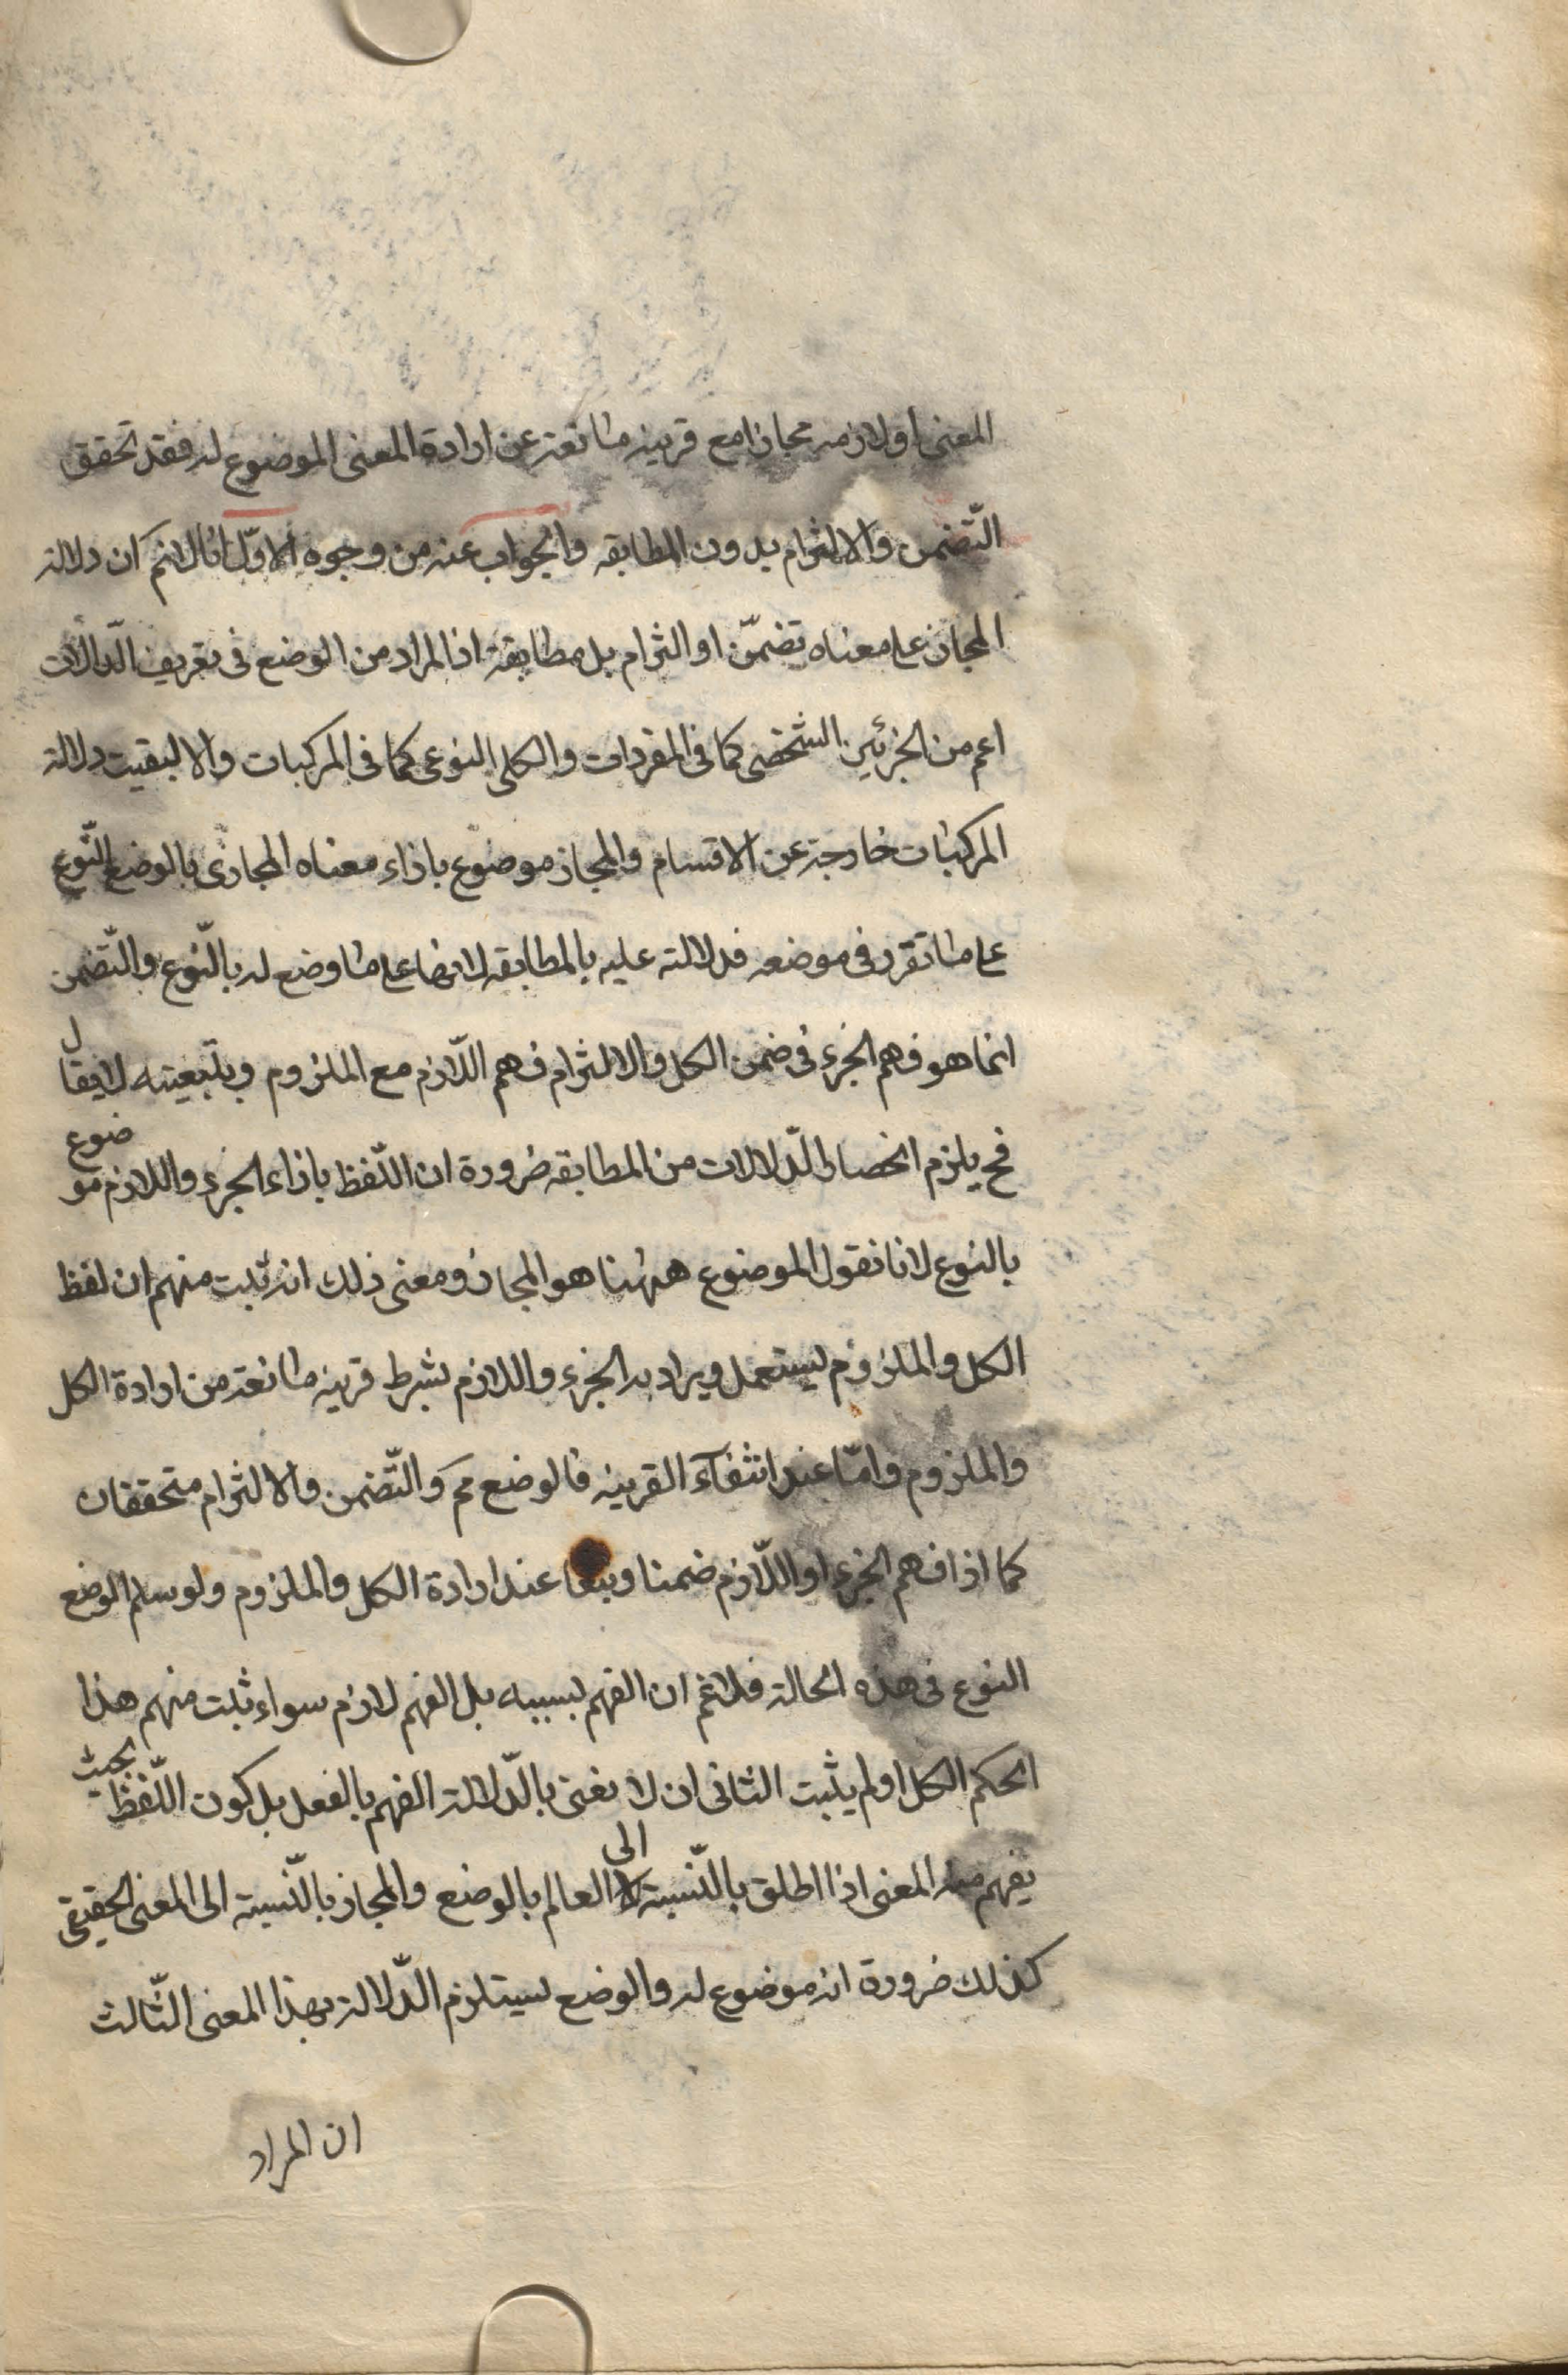 المعنى او لازمه مجازا مع قرينه مانعة عن ارادة المعنى الموضوع له فقد تحقق
التّضمن والالتزام بدون المطابقه والجواب عنه من وجوه الاوّل انا لانم ان دلالة
المجاز على معناه تضمّن او التزام بل مطابقة اذ المراد من الوضع فى تعريف الدّلالات
اعم من الجزئى الشخصى كما فى المفردات والكلى النوعى كما فى المركبات والا لبقيت دلالة
المركبات خارجة عن الاقسام والمجاز موضوع بازاء معناه المجازى بالوضع النّوع
على ما تقرر فى موضعه فدلالته عليه بالمطابقه لانها على ما وضع له بالنّوع والتّضمن
انما هو فهم الجزء فى ضمن الكل والالتزام فهم اللّازم مع الملزوم وبتبعيته لايقال
فح يلزم انحصار الدّلالات من المطابقه ضرورة ان اللّفظ بازاء الجزء واللازم موضوع
بالنوع لانا نقول الموضوع ههنا هو المجاز ومعنى ذلك انه ثبت منهم ان لفظ
الكل والملزوم ليستعمل ويراد به الجزء واللازم بشرط قرينه مانعة من ارادة الكل
والملزوم وامّا عند انتفآء القرينه فالوضع مم والتّضمن والالتزام متحققان
كما اذا فهم الجزء او اللّازم ضمنا وتبعا عند ارادة الكل والملزوم ولو سلم الوضع
النوع فى هذه الحالة فلانم ان الفهم بسببه بل الفهم لازم سواء ثبت منهم هذا
الحكم الكل او لم يثبت الثانى ان لا نعنى بالدّلالة الفهم بالفعل بل كون اللّفظ بحيث
يفهم منه المعنى اذا اطلق بالنّسبة الى العالم بالوضع والمجاز بالنّسبة الى المعنى الحقيقى
كذلك ضرورة انه موضوع له والوضع ليستلزم الدّلالة بهذا المعنى الثّالث
ان المراد